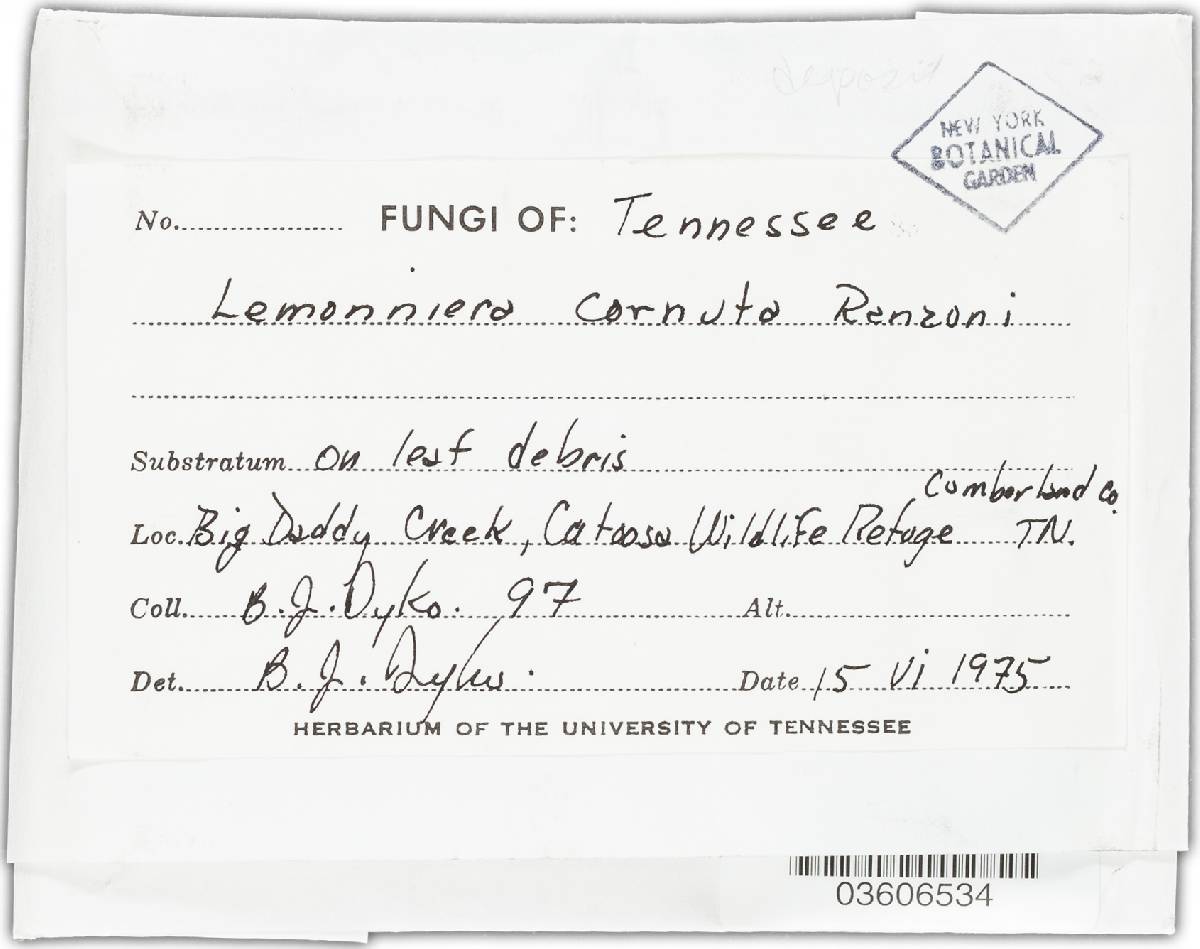 deposit
NEW YORK
BOTANICAL
GARDEN
No. FUNGI OF: Tennessee
Lemonniera cornuta Ranzoni
Substratum on leaf debris
Cumberland Co.
Loc. Big Daddy Creek, Catoosa Wildlife Refuge TN.
Coll. B.J. Dyko. 97 Alt.
Det. B.J. Dyko. Date 15 Vi 1975
HERBARIUM OF THE UNIVERSITY OF TENNESSEE
03606534